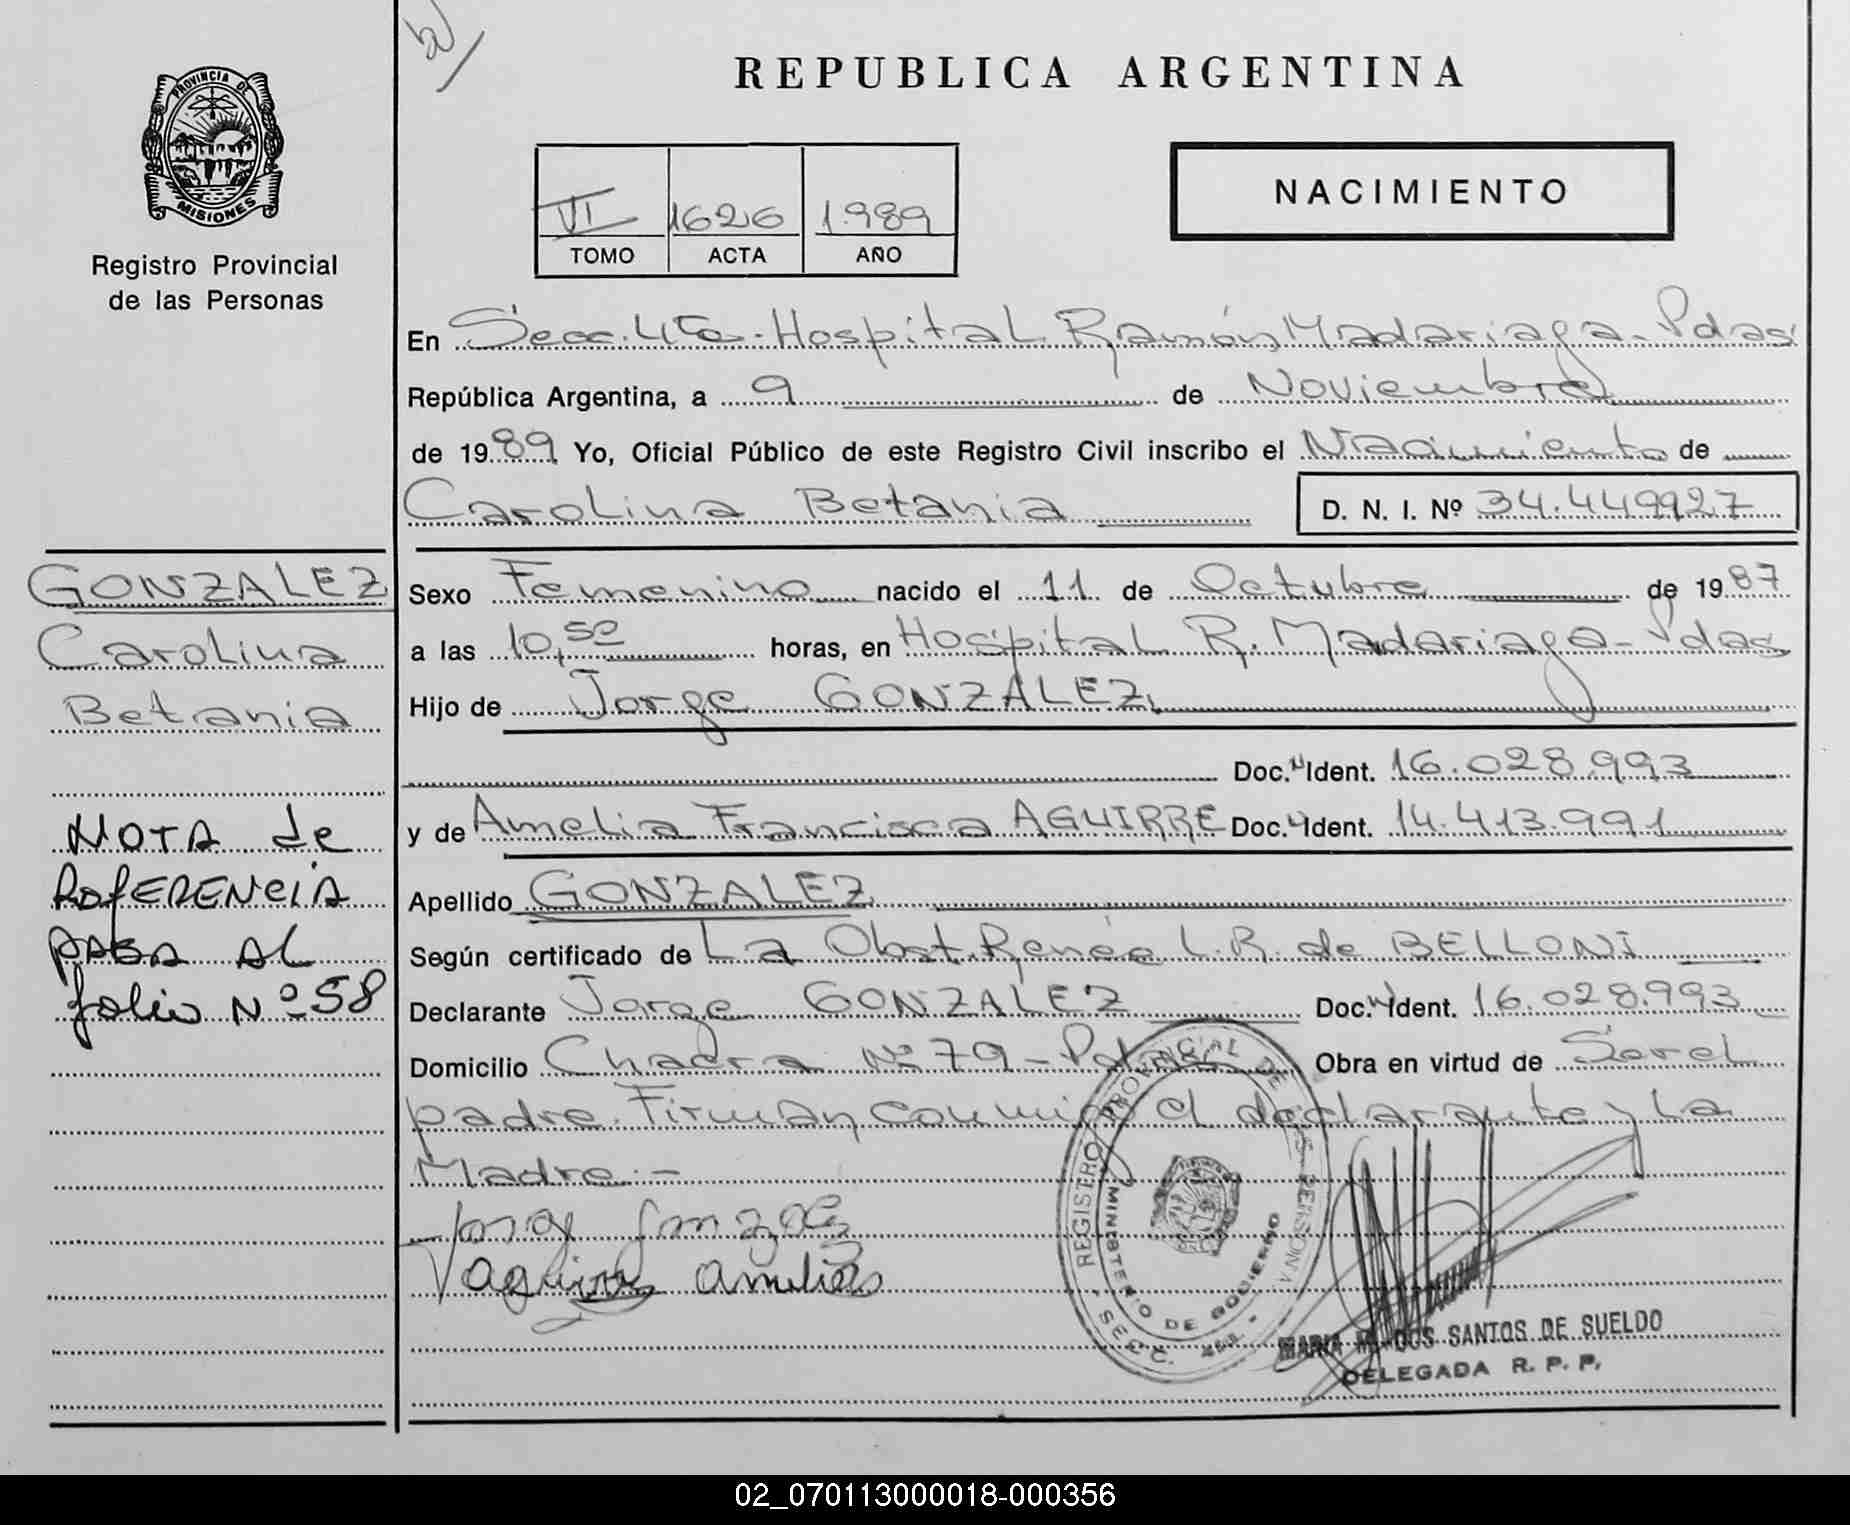 REPUBLICA ARGENTINA
PROVINCIA DE
MISIONES
Registro Provincial
de las Personas
VI 1626 1.989
TOMO ACTA AÑO
NACIMIENTO
En Secc. 4ta - Hospital Ramón Madariaga - Pdas
República Argentina, a 9 de Noviembre
de 1989 Yo, Oficial Público de este Registro Civil inscribo el Nacimiento de
Carolina Betania
D. N. I. Nº 34.449927
GONZALEZ
Carolina
Betania
NOTA de
REFERENCIA
PASA AL
folio Nº 58
Sexo Femenino nacido el 11 de Octubre de 1987
a las 10,50 horas, en Hospital R. Madariaga - Pdas
Hijo de Jorge GONZALEZ
Doc. Ident. 16.028.993
y de Amelia Francisca AGUIRRE Doc. Ident. 14.413.991
Apellido GONZALEZ
Según certificado de La Obst. Renée L.R. de BELLONI
Declarante Jorge GONZALEZ Doc. Ident. 16.028.993
Domicilio Chacra Nº 79 - Pdas Obra en virtud de Ser el
padre. Firman conmigo el declarante y La
Madre.-
Jorge Gonzalez
Aguirre Amelia
REGISTRO PROVINCIAL DE LAS PERSONAS
MINISTERIO DE GOBIERNO
SECC. 4ta
MARIA M. DOS SANTOS DE SUELDO
DELEGADA R. P. P.
02_070113000018-000356